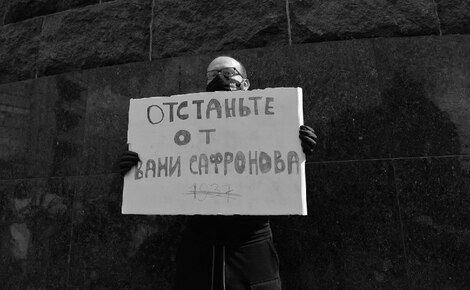 ОТСТАНЬТЕ
ОТ
ВАНИ САФРОНОВА
1937